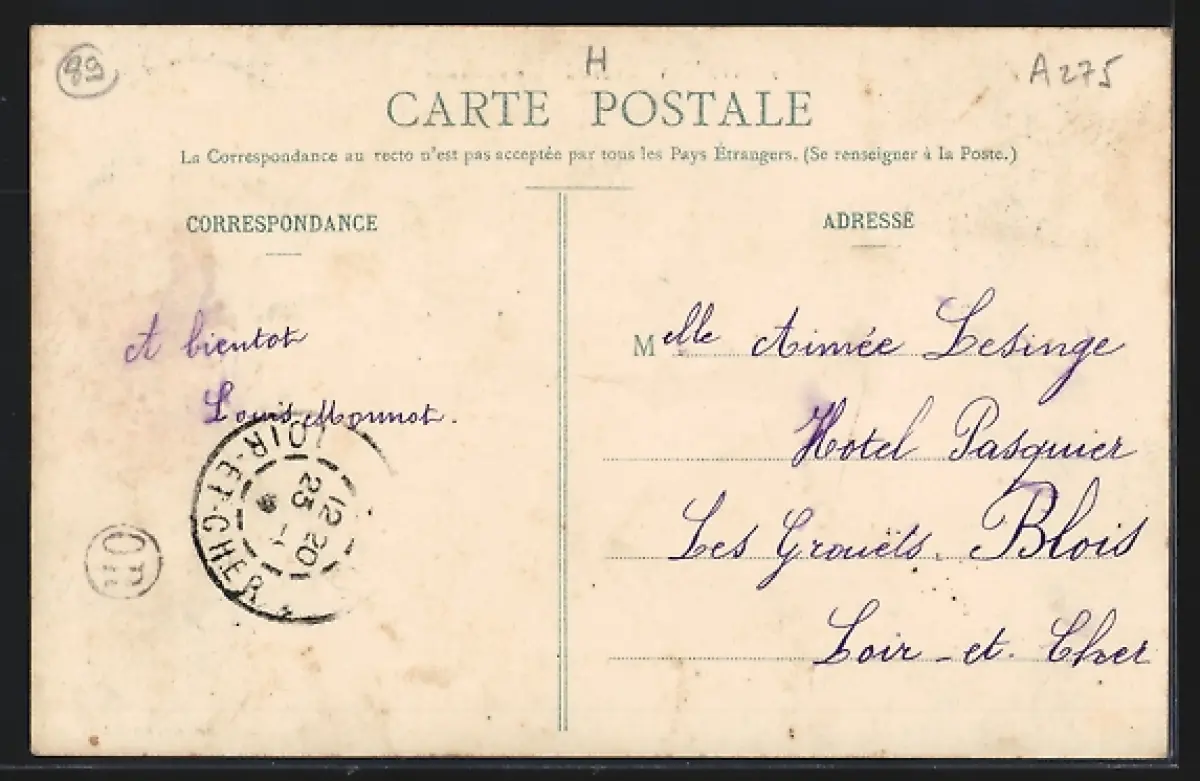 89
H
A275
CARTE POSTALE
La Correspondance au recto n'est pas acceptée par tous les Pays Étrangers. (Se renseigner à la Poste.)
CORRESPONDANCE
A bientot
Louis Monnot.
LOIR-ET-CHER
12 20
25
OR
ADRESSE
Melle Aimée Lesinge
Hotel Pasquier
Les Grouëts. Blois
Loir-et-Cher